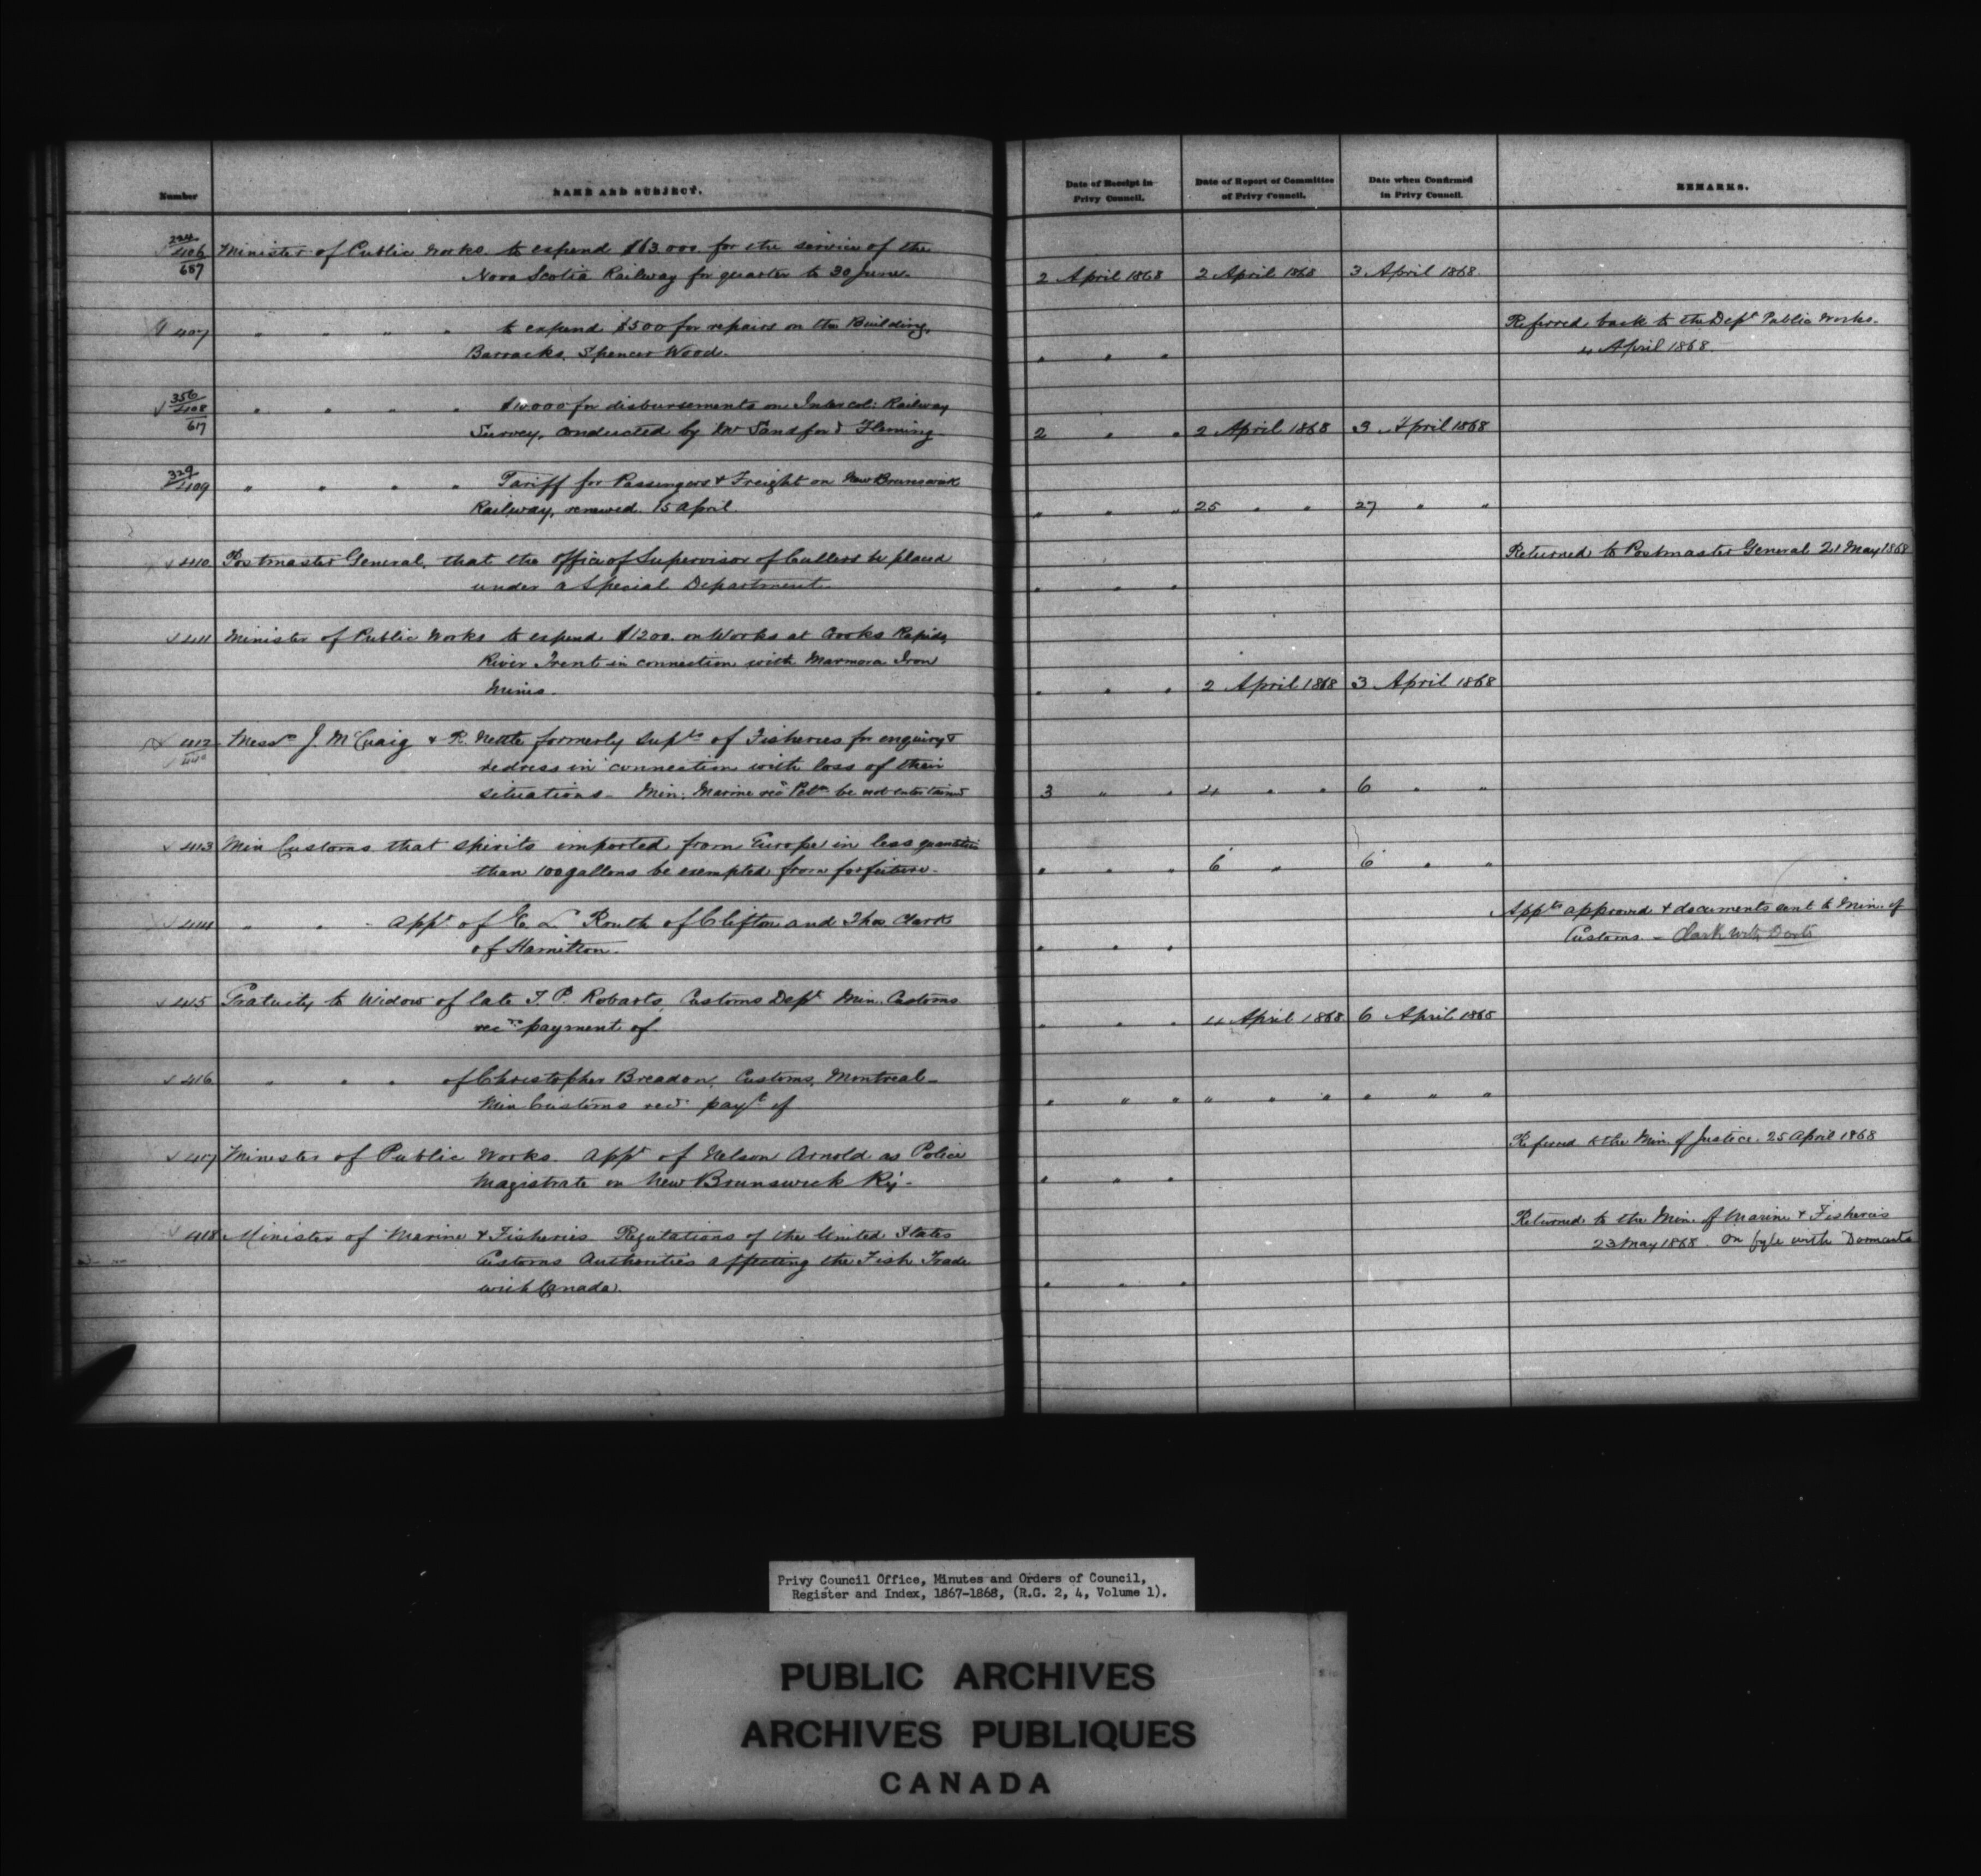 Number
NAME AND SUBJECT.
Date of Receipt in
Privy Council.
Date of Report of Committee
of Privy Council.
Date when Confirmed
in Privy Council.
REMARKS.
406
687
Minister of Public Works to expend $63.000 for the service of the
Nova Scotia Railway for quarter to 30 June.
2 April 1868 2 April 1868 3 April 1868
407 " " " " to expend $500 for repairs on the Building,
Barracks, Spencer Wood.
" " "
Referred back to the Dept Public Works.
4 April 1868.
356
408
617
" " " " $10000 for disbursements on Intercol: Railway
Survey, conducted by Mr Sandford Fleming
2 " " 2 April 1868 3 April 1868
329
409
" " " " Tariff for Passengers & Freight on New Brunswick
Railway, renewed 15 April
" " " 25 " " 27 " "
410 Postmaster General, that the office of Supervisor of Cullers be placed
under a Special Department.
" " "
Returned to Postmaster General 21 May 1868
411 Minister of Public Works to expend $1200. on Works at Crooks Rapids,
River Trent in connection with Marmora Iron
Mines.
" " " 2 April 1868 3 April 1868
412 Messrs J. McCuaig & R. Nettle formerly Supts of Fisheries for enquiry &
redress in connection with loss of their
situations - Min: Marine rec Petn be not entertained
3 " " 4 " " 6 " "
413 Min Customs that spirits imported from Europe in less quantities
than 100 gallons be exempted from forfeiture.
" " " 6 " 6 " "
414 " " " appt of E. L. Routh of Clifton and Thos Clark
of Hamilton.
" " "
Appts approved & documents sent to Min. of
Customs - Clark with Dorts
415 Gratuity to Widow of late T. P. Robarts, Customs Dept Min. Customs
recds payment of
" " " 4 April 1868 6 April 1868
416 " " " of Christopher Breadon, Customs, Montreal -
Min Customs recd payt of
" " " " " " " " "
417 Minister of Public Works. Appt of Nelson Arnold as Police
Magistrate on New Brunswick Ry.
" " "
Referred to the Min. of Justice. 25 April 1868
418 Minister of Marine & Fisheries Regulations of the United States
Customs Authorities affecting the Fish Trade
with Canada.
" " "
Returned to the Min. of Marine & Fisheries
23 May 1868. On fyle with Dormants
Privy Council Office, Minutes and Orders of Council,
Register and Index, 1867-1868, (R.G. 2, 4, Volume 1).
PUBLIC ARCHIVES
ARCHIVES PUBLIQUES
CANADA